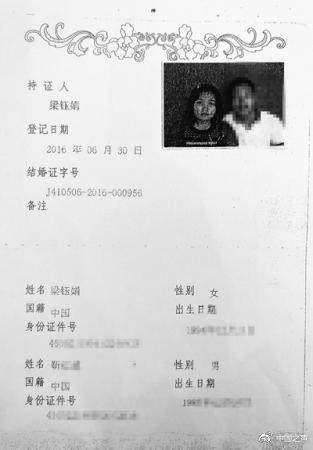 持证人
梁钰娟
登记日期
2016 年 06 月 30 日
结婚证字号
J410506-2016-000956
备注
姓名 梁钰娟 性别 女
国籍 中国 出生日期
身份证件号 199
45
姓名 靳 性别 男
国籍 中国 出生日期
身份证件号 198
410
中国之声